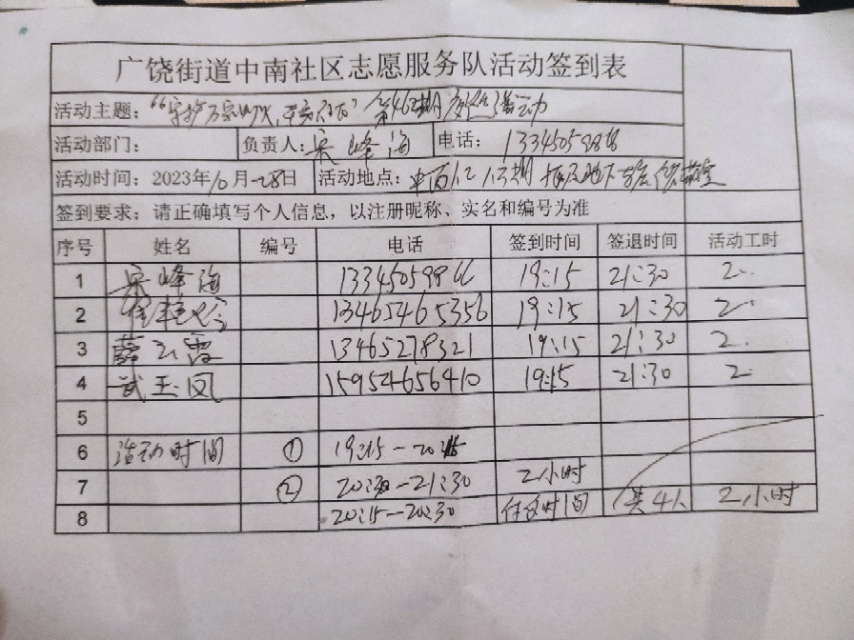 广饶街道中南社区志愿服务队活动签到表
活动主题：“守护万家灯火，平安你我” 第46期 活动
活动部门： 负责人：吴峰海 电话：
活动时间：2023年10月28日 活动地点：
签到要求：请正确填写个人信息，以注册昵称、实名和编号为准
序号 姓名 编号 电话 签到时间 签退时间 活动工时
1 吴峰海 19:15 21:30 2
2 13465465356 19:15 21:30 2
3 薛云霞 13465278321 19:15 21:30 2
4 武玉凤 15954656410 19:15 21:30 2
5
6 活动时间 ① 19:15-20:15
7 ② 20:30-21:30 2小时
8 20:15-20:30 休息时间 共4人 2小时